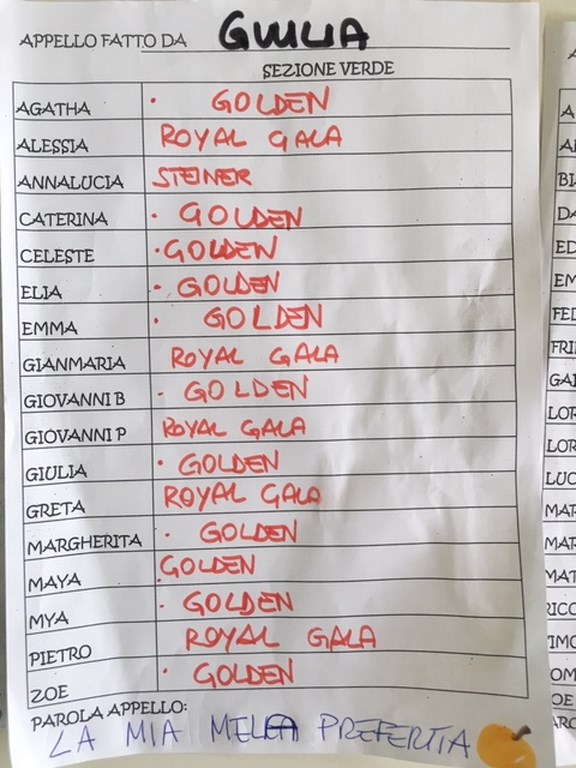 APPELLO FATTO DA GIULIA
SEZIONE VERDE
AGATHA · GOLDEN
ALESSIA ROYAL GALA
ANNALUCIA STEINER
CATERINA · GOLDEN
CELESTE · GOLDEN
ELIA · GOLDEN
EMMA · GOLDEN
GIANMARIA ROYAL GALA
GIOVANNI B · GOLDEN
GIOVANNI P ROYAL GALA
GIULIA · GOLDEN
GRETA ROYAL GALA
MARGHERITA · GOLDEN
MAYA · GOLDEN
MYA · GOLDEN
PIETRO ROYAL GALA
ZOE · GOLDEN
PAROLA APPELLO:
LA MIA MELA PREFERTIA